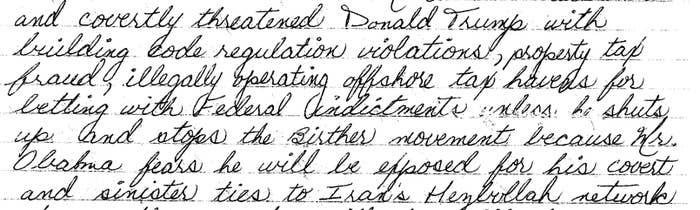 and covertly threatened Donald Trump with
building code regulation violations, property tax
fraud, illegally operating offshore tax havens for
betting with Federal indictments unless he shuts
up and stops the Birther movement because Mr.
Obahma fears he will be exposed for his covert
and sinister ties to Iran's Hezbollah network